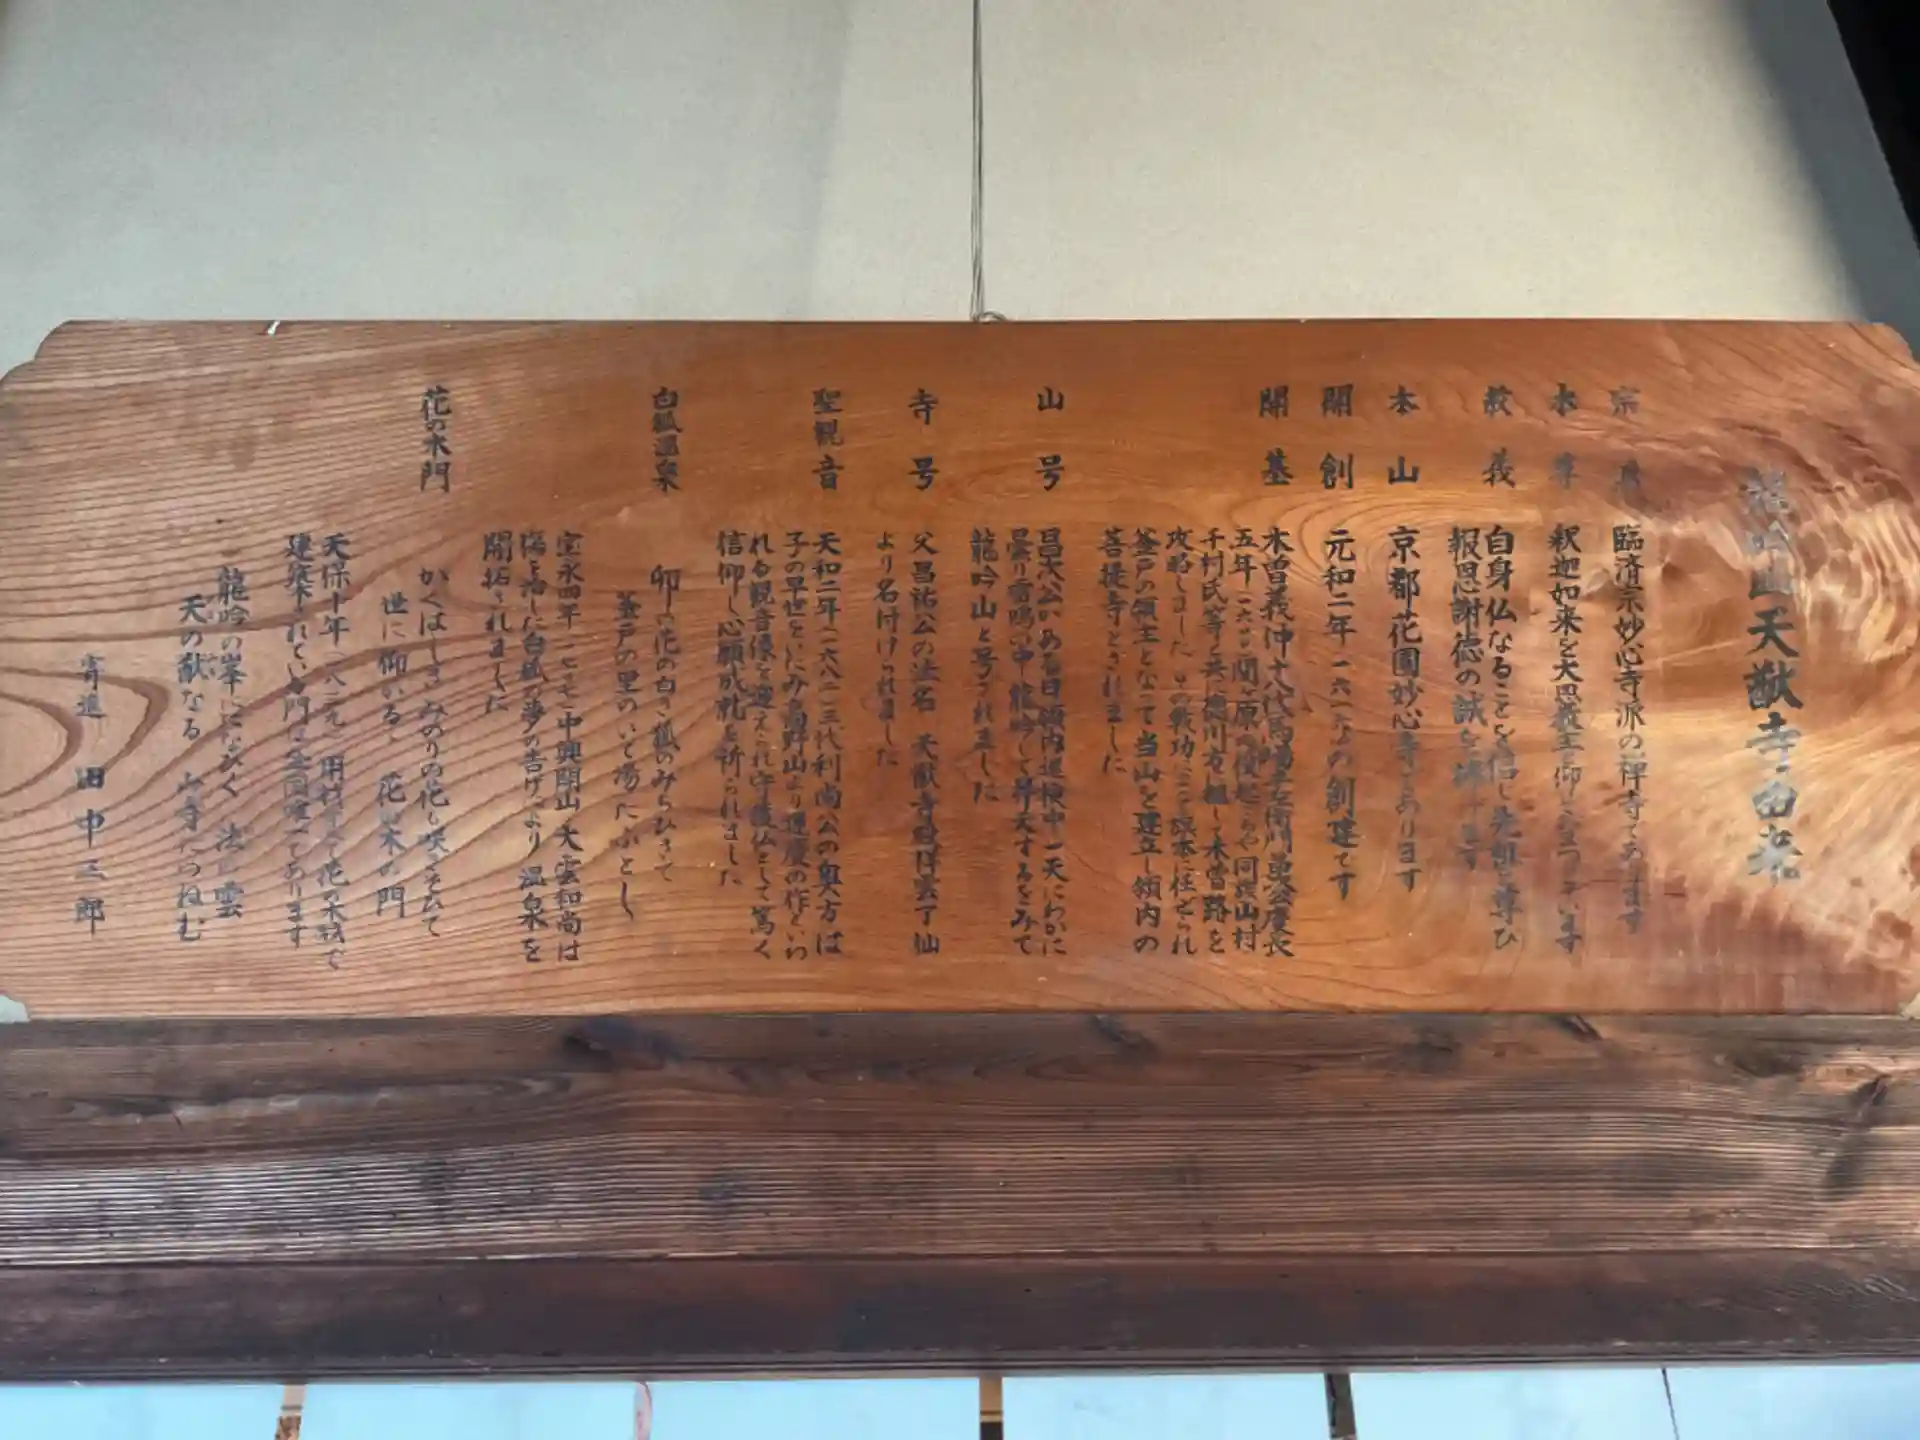 龍吟山天猷寺由来
宗 旨 臨済宗妙心寺派の禅寺であります
本 尊 釈迦如来を大恩教主と仰ぎまつっています
教 義 自身仏なることを信じ先祖を尊び
報恩謝徳の誠を捧げます
本 山 京都花園妙心寺であります
開 創 元和二年 一六一六の創建です
開 基 木曽義仲十八代馬場半左衛門昌次慶長
五年一六〇〇関ヶ原の役起るや同族山村
千村氏等と共に徳川方に組して木曽路を
攻略しました この戦功により旗本に任ぜられ
釜戸の領主となって当山を建立し領内の
菩提寺とされました
山 号 昌次公がある日領内巡検中一天にわかに
曇り雷鳴の中龍吟して昇天するをみて
龍吟山と号されました
寺 号 父昌祐公の法名 天猷寺殿得雲了仙
より名付けられました
聖観音 天和二年一六八二三代利尚公の奥方は
子の早世をいたみ高野山より運慶の作といわ
れる観音像を迎えられ守護仏として篤く
信仰し心願成就を祈られました
白狐温泉 卯の花の白き狐のみちびきて
釜戸の里のいで湯たふとし
宝永四年一七〇七中興開山 大雲和尚は
傷を治した白狐の夢の告げにより温泉を
開拓されました
花の木門 かぐはしきみのりの花も咲きそひて
世に仰がるゝ 花の木の門
天保十年一八三九 用材すべて花の木材で
建築されている門は全国唯一であります
龍吟の峯にたなびく 法の雲
天の猷なる 山寺たづねむ
寄進 田中三郎